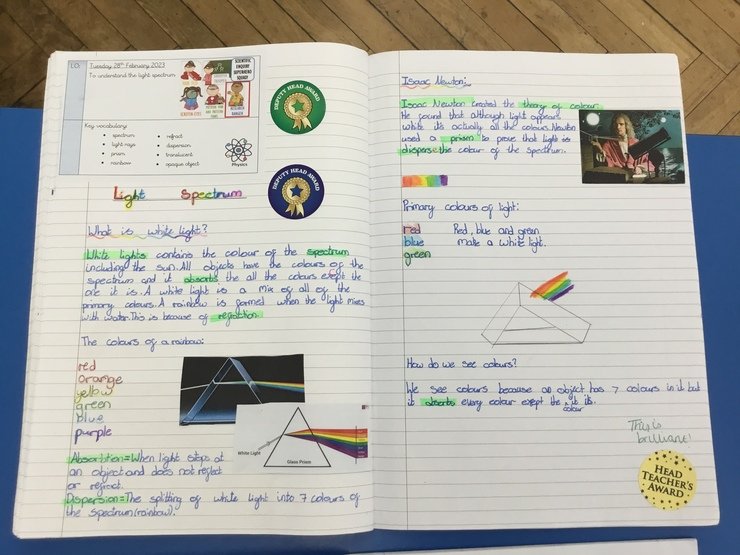 LO:
Tuesday 28th February 2023
To understand the light spectrum
SCIENTIFIC
ENQUIRY
SUPERHERO
SQUAD!
Key vocabulary:
• spectrum
• light rays
• prism
• rainbow
• refract
• dispersion
• translucent
• opaque object
Physics
DEPUTY HEAD AWARD
DEPUTY HEAD AWARD
Light Spectrum
What is white light?
White lights contains the colour of the spectrum
including the sun. All objects have the colours of the
spectrum and it absorbs the all the colours except the
one it is. A white light is a mix of all of the
primary colours. A rainbow is formed when the light mixes
with water. This is because of refraction.
The colours of a rainbow:
red
orange
yellow
green
blue
purple
White Light
Glass Prism
Absorbtion=When light stops at
an object and does not reflect
or refract.
Dispersion=The splitting of white light into 7 colours of
the spectrum (rainbow).
Isaac Newton:
Isaac Newton created the theory of colour.
He found that although light appears
white its actually all the colours. Newton
used a prism to prove that light is
dispers the colour of the spectrum.
Primary colours of light:
red Red, blue and green
blue make a white light.
green
How do we see colours?
We see colours because an object has 7 colours in it but
it absorbs every colour except the colour it is.
This is
brilliant!
HEAD
TEACHER'S
AWARD